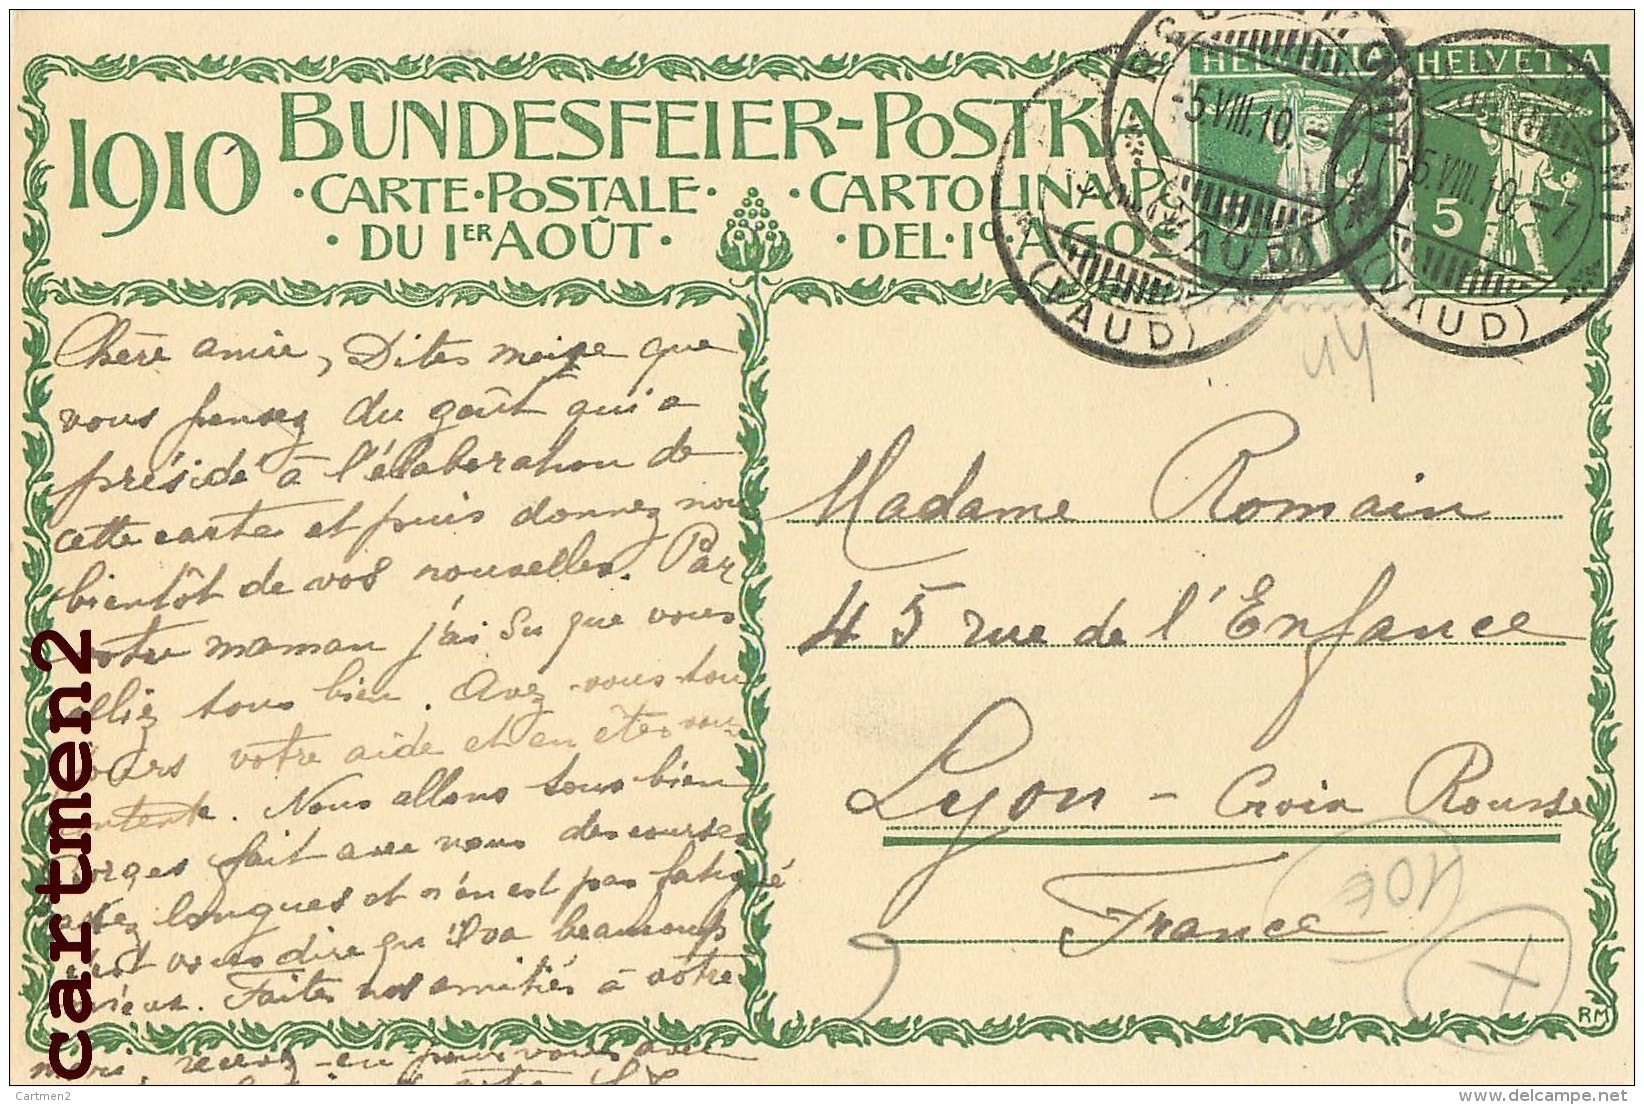 1910 BUNDESFEIER-POSTKA
·CARTE·POSTALE· ·CARTOLINA·P
·DU 1ER AOÛT· ·DEL·1º·AGOS
HELVETIA HELVETIA
5
5.VIII.10.-7
(VAUD)
(VAUD)
(VAUD)
Chère amie, Dites moi que
vous pensez du goût qui a
présidé à l'élaboration de
cette carte et puis donnez nous
bientôt de vos nouvelles. Par
votre maman j'ai su que vous
alliez tous bien. Avez-vous tou
jours votre aide et en êtes vous
contente. Nous allons tous bien
fait avec nous des courses
assez longues et n'en est pas fatigué
c'est vous dire qu'il va beaucoup
mieux. Faites nos amitiés à votre
mari, recevez-en pour vous avec
Madame Romain
45 rue de l'Enfance
Lyon - Croix Rousse
France
RM
cartmen2
Cartmen2
www.delcampe.net